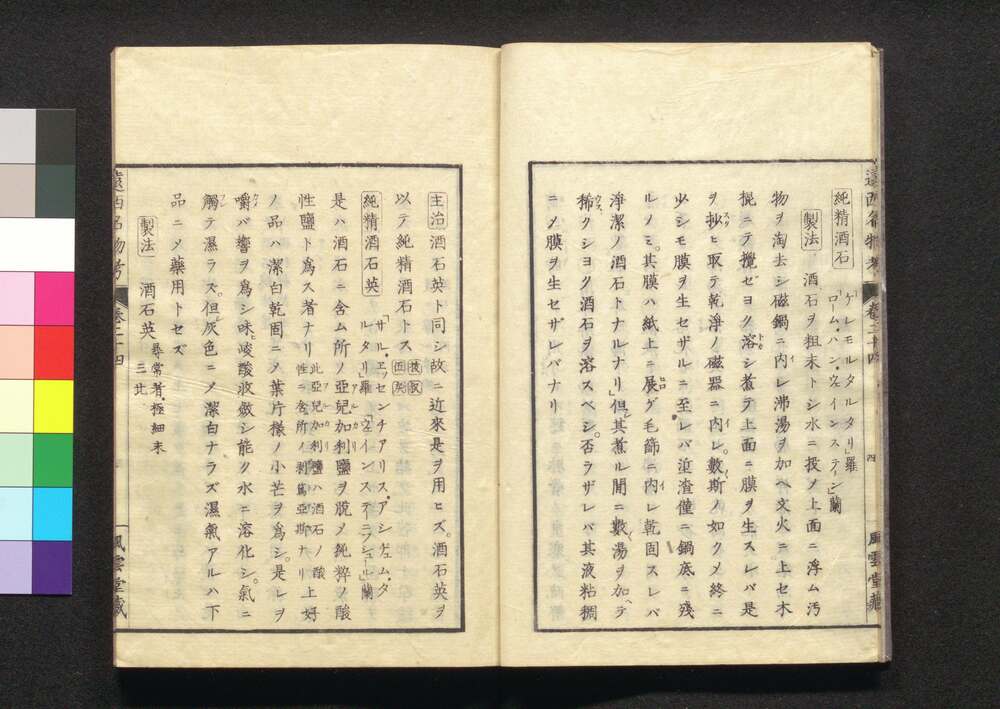 遠西名物考
卷二十四
四
風雲堂藏
純精酒石 「ゲレモルタルタリ」羅
「ローム・ハン・ウェインステーン」蘭
製法 酒石ヲ粗末トシ水ニ投メ上面ニ浮ム汚
物ヲ淘去シ磁鍋ニ内レ沸湯ヲ加ヘ文火ニ上セ木
棍ニテ攪ゼヨク溶シ煮テ上面ニ膜ヲ生スレバ是
ヲ抄ヒ取テ乾淨ノ磁器ニ内レ數斯ノ如クメ終ニ
少シモ膜ヲ生セザルニ至レバ渣滓僅ニ鍋底ニ殘
ルノミ其膜ハ紙上ニ展ゲ毛篩ニ内レ乾固スレバ
淨潔ノ酒石トナルナリ但其煮ル間ニ數湯ヲ加ヘテ
稀クシヨク酒石ヲ溶スベシ否ラザレバ其液粘稠
ニメ膜ヲ生セザレバナリ
主治 酒石英ト同シ故ニ近來是ヲ用ヒズ酒石英ヲ
以テ純精酒石トス
純精酒石英 「サル・エッセンチアリス・アシデュム・タ
ルタリ」羅 「ウェインステーラシュール」蘭
是ハ酒石ニ含ム所ノ亞兒加利鹽ヲ脱メ純粹ノ酸
性鹽ト爲ス者ナリ 此亞兒加利鹽ハ酒石ノ酸
性ニ含所ノ剥篤亞斯ナリ 上好
ノ品ハ潔白乾固ニメ葉片樣ノ小芒ヲ爲シ是レヲ
嚼バ響ヲ爲シ味峻酸收斂シ能ク水ニ溶化シ氣ニ
觸テ濕ラズ但灰色ニメ潔白ナラズ濕氣アルハ下
品ニメ藥用トセズ
製法 酒石英 尋常者極細末
三比
遠西名物考
卷二十四
四
風雲堂藏